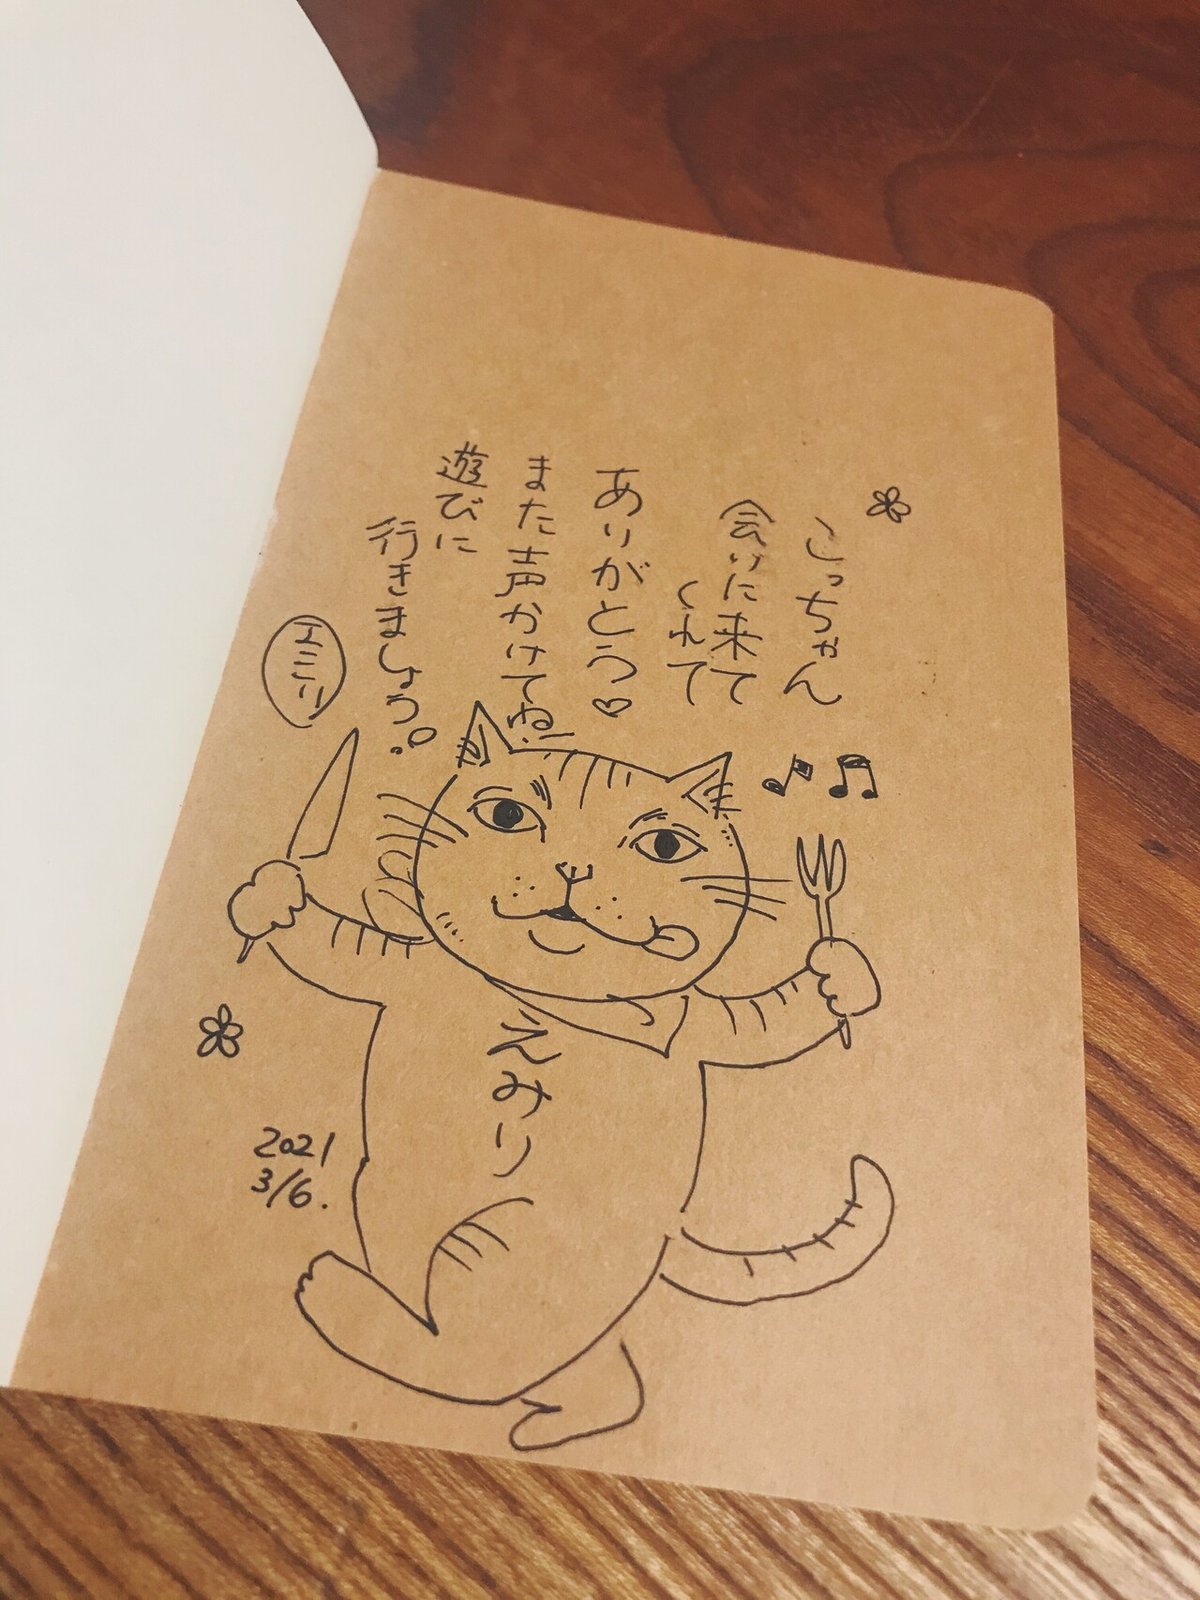 こっちゃん
会いに来て
くれて
ありがとう♡
また声かけてね!
遊びに
行きましょう。
エミリ
えみり
2021
3/6.